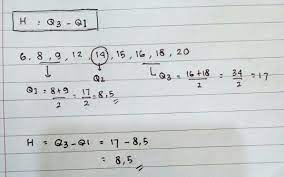 H : Q3 - Q1
6, 8, 9, 12, 14, 15, 16, 18, 20
Q2
Q1 = 8+9/2 = 17/2 = 8,5
Q3 = 16+18/2 = 34/2 = 17
H = Q3 - Q1 = 17 - 8,5
= 8,5